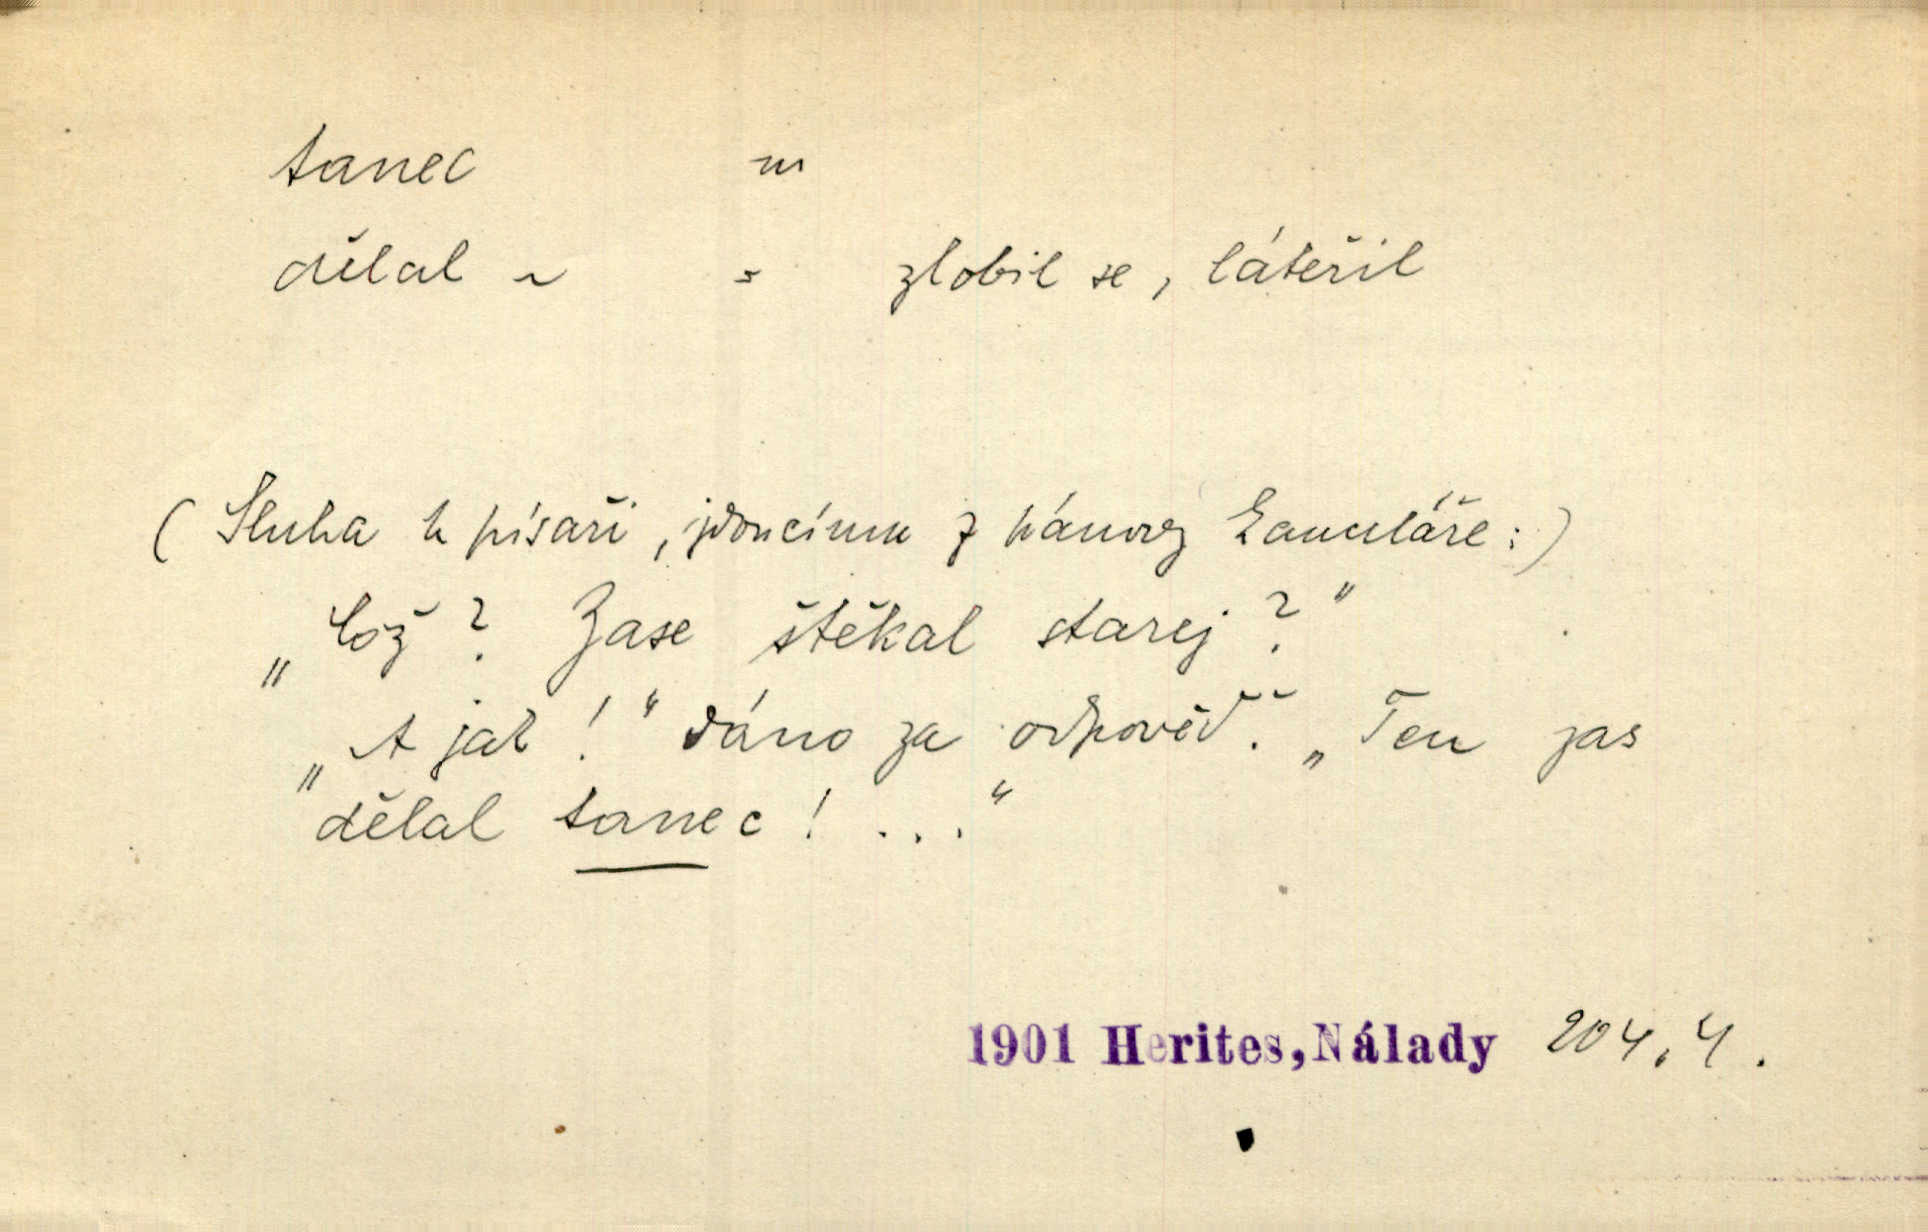 tanec m
dělal ~ = zlobil se, láteřil
(Sluha k písaři, jdoucímu z pánovy kanceláře:)
„Což? Zase štěkal starej?"
„A jak!“ dáno za odpověď. „Ten zas
dělal tanec! ...“
1901 Herites, Nálady 204,4.